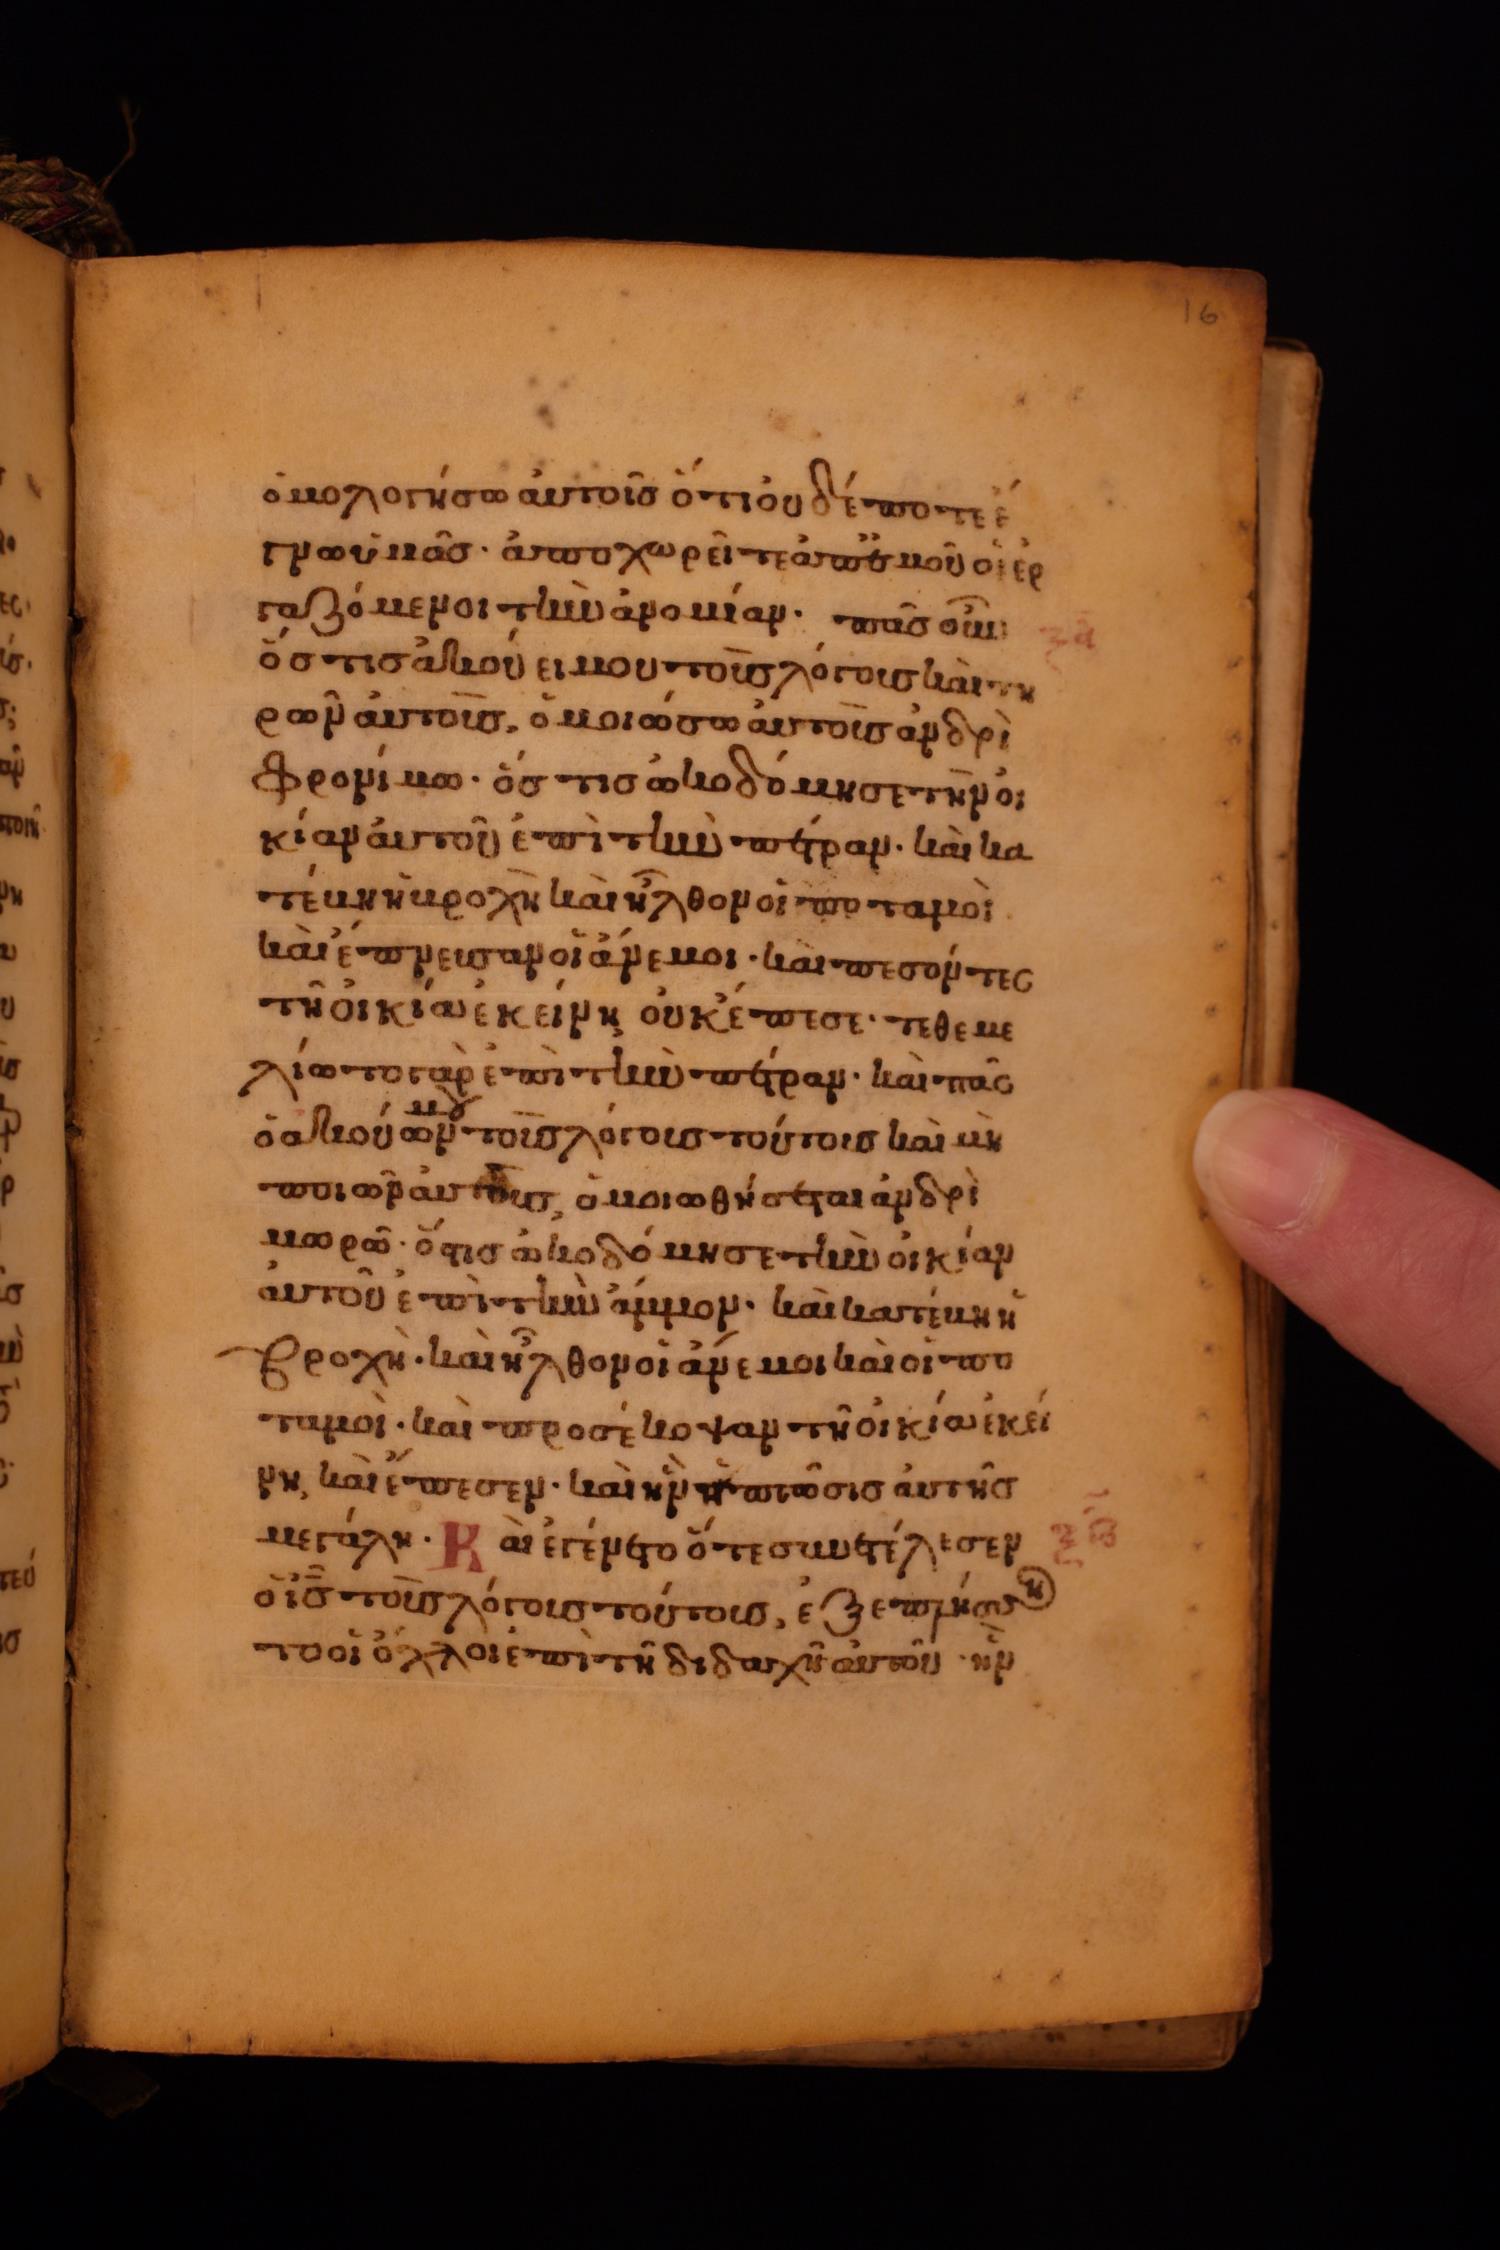 16
ὁμολογήσω ἀυτοῖσ ὅτι ὀυδέποτε ἔ
γνω ὑμᾶσ· ἀποχωρεῖτε ἀπ ἐμοῦ οἱ ἐρ
γαζόμενοι τὴν ἀνομίαν· πᾶσ οὖν
ὅστισ ἀκούει μου τοὺσ λόγουσ καὶ τη
ρῶν ἀυτοὺσ, ὁμοιώσω ἀυτοὺσ ἀνδρὶ
φρονίμω· ὅστισ ὠκοδόμησε τὴν ὀι
κίαν ἀυτοῦ ἐπὶ τὴν πέτραν· καὶ κα
τέβη ἡ βροχὴ καὶ ἦλθον οἱ ποταμοὶ
καὶ ἔπνευσαν οἱ ἄνεμοι· καὶ πεσόντες
τῆ ὀικία ἐκείνη, ὀυκ ἔπεσε· τεθεμε
λίωτο γὰρ ἐπὶ τὴν πέτραν· καὶ πᾶς
ὁ ἀκούων μου τοὺσ λόγουσ τούτουσ καὶ μὴ
ποιῶν ἀυτοὺσ, ὁμοιωθήσεται ἀνδρὶ
μωρῶ· ὅστισ ὠκοδόμησε τὴν ὀικίαν
ἀυτοῦ ἐπὶ τὴν ἄμμον· καὶ κατέβη ἡ
βροχὴ· καὶ ἦλθον οἱ ἄνεμοι καὶ οἱ πο
ταμοὶ· καὶ προσέκοψαν τῆ ὀικία ἐκεί
νη, καὶ ἔπεσεν· καὶ ἦν ἡ πτῶσισ ἀυτῆσ
μεγάλη· Καὶ ἐγένετο ὅτε συνετέλεσεν
ὁ ις̄ τοὺσ λόγουσ τούτουσ, ἐξεπλήσσον
το οἱ ὄχλοι ἐπὶ τῆ διδαχῆ ἀυτοῦ· ἦν